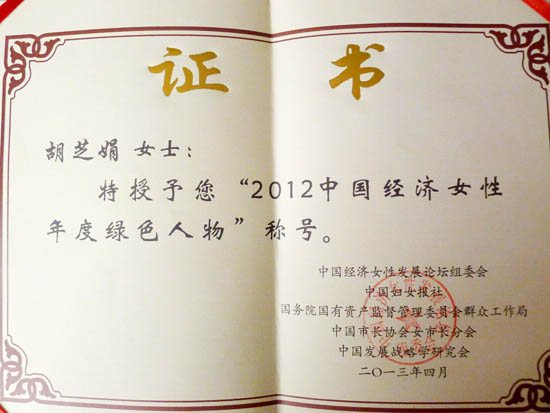 证书
胡芝娟 女士：
特授予您“2012中国经济女性
年度绿色人物”称号。
中国经济女性发展论坛组委会
中国妇女报社
国务院国有资产监督管理委员会群众工作局
中国市长协会女市长分会
中国发展战略学研究会
二〇一三年四月